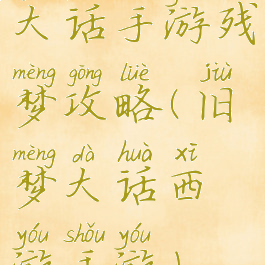 大话手游残
mèng gōng lüè jiù
梦攻略(旧
mèng dà huà xī
梦大话西
yóu shǒu yóu
游手游)